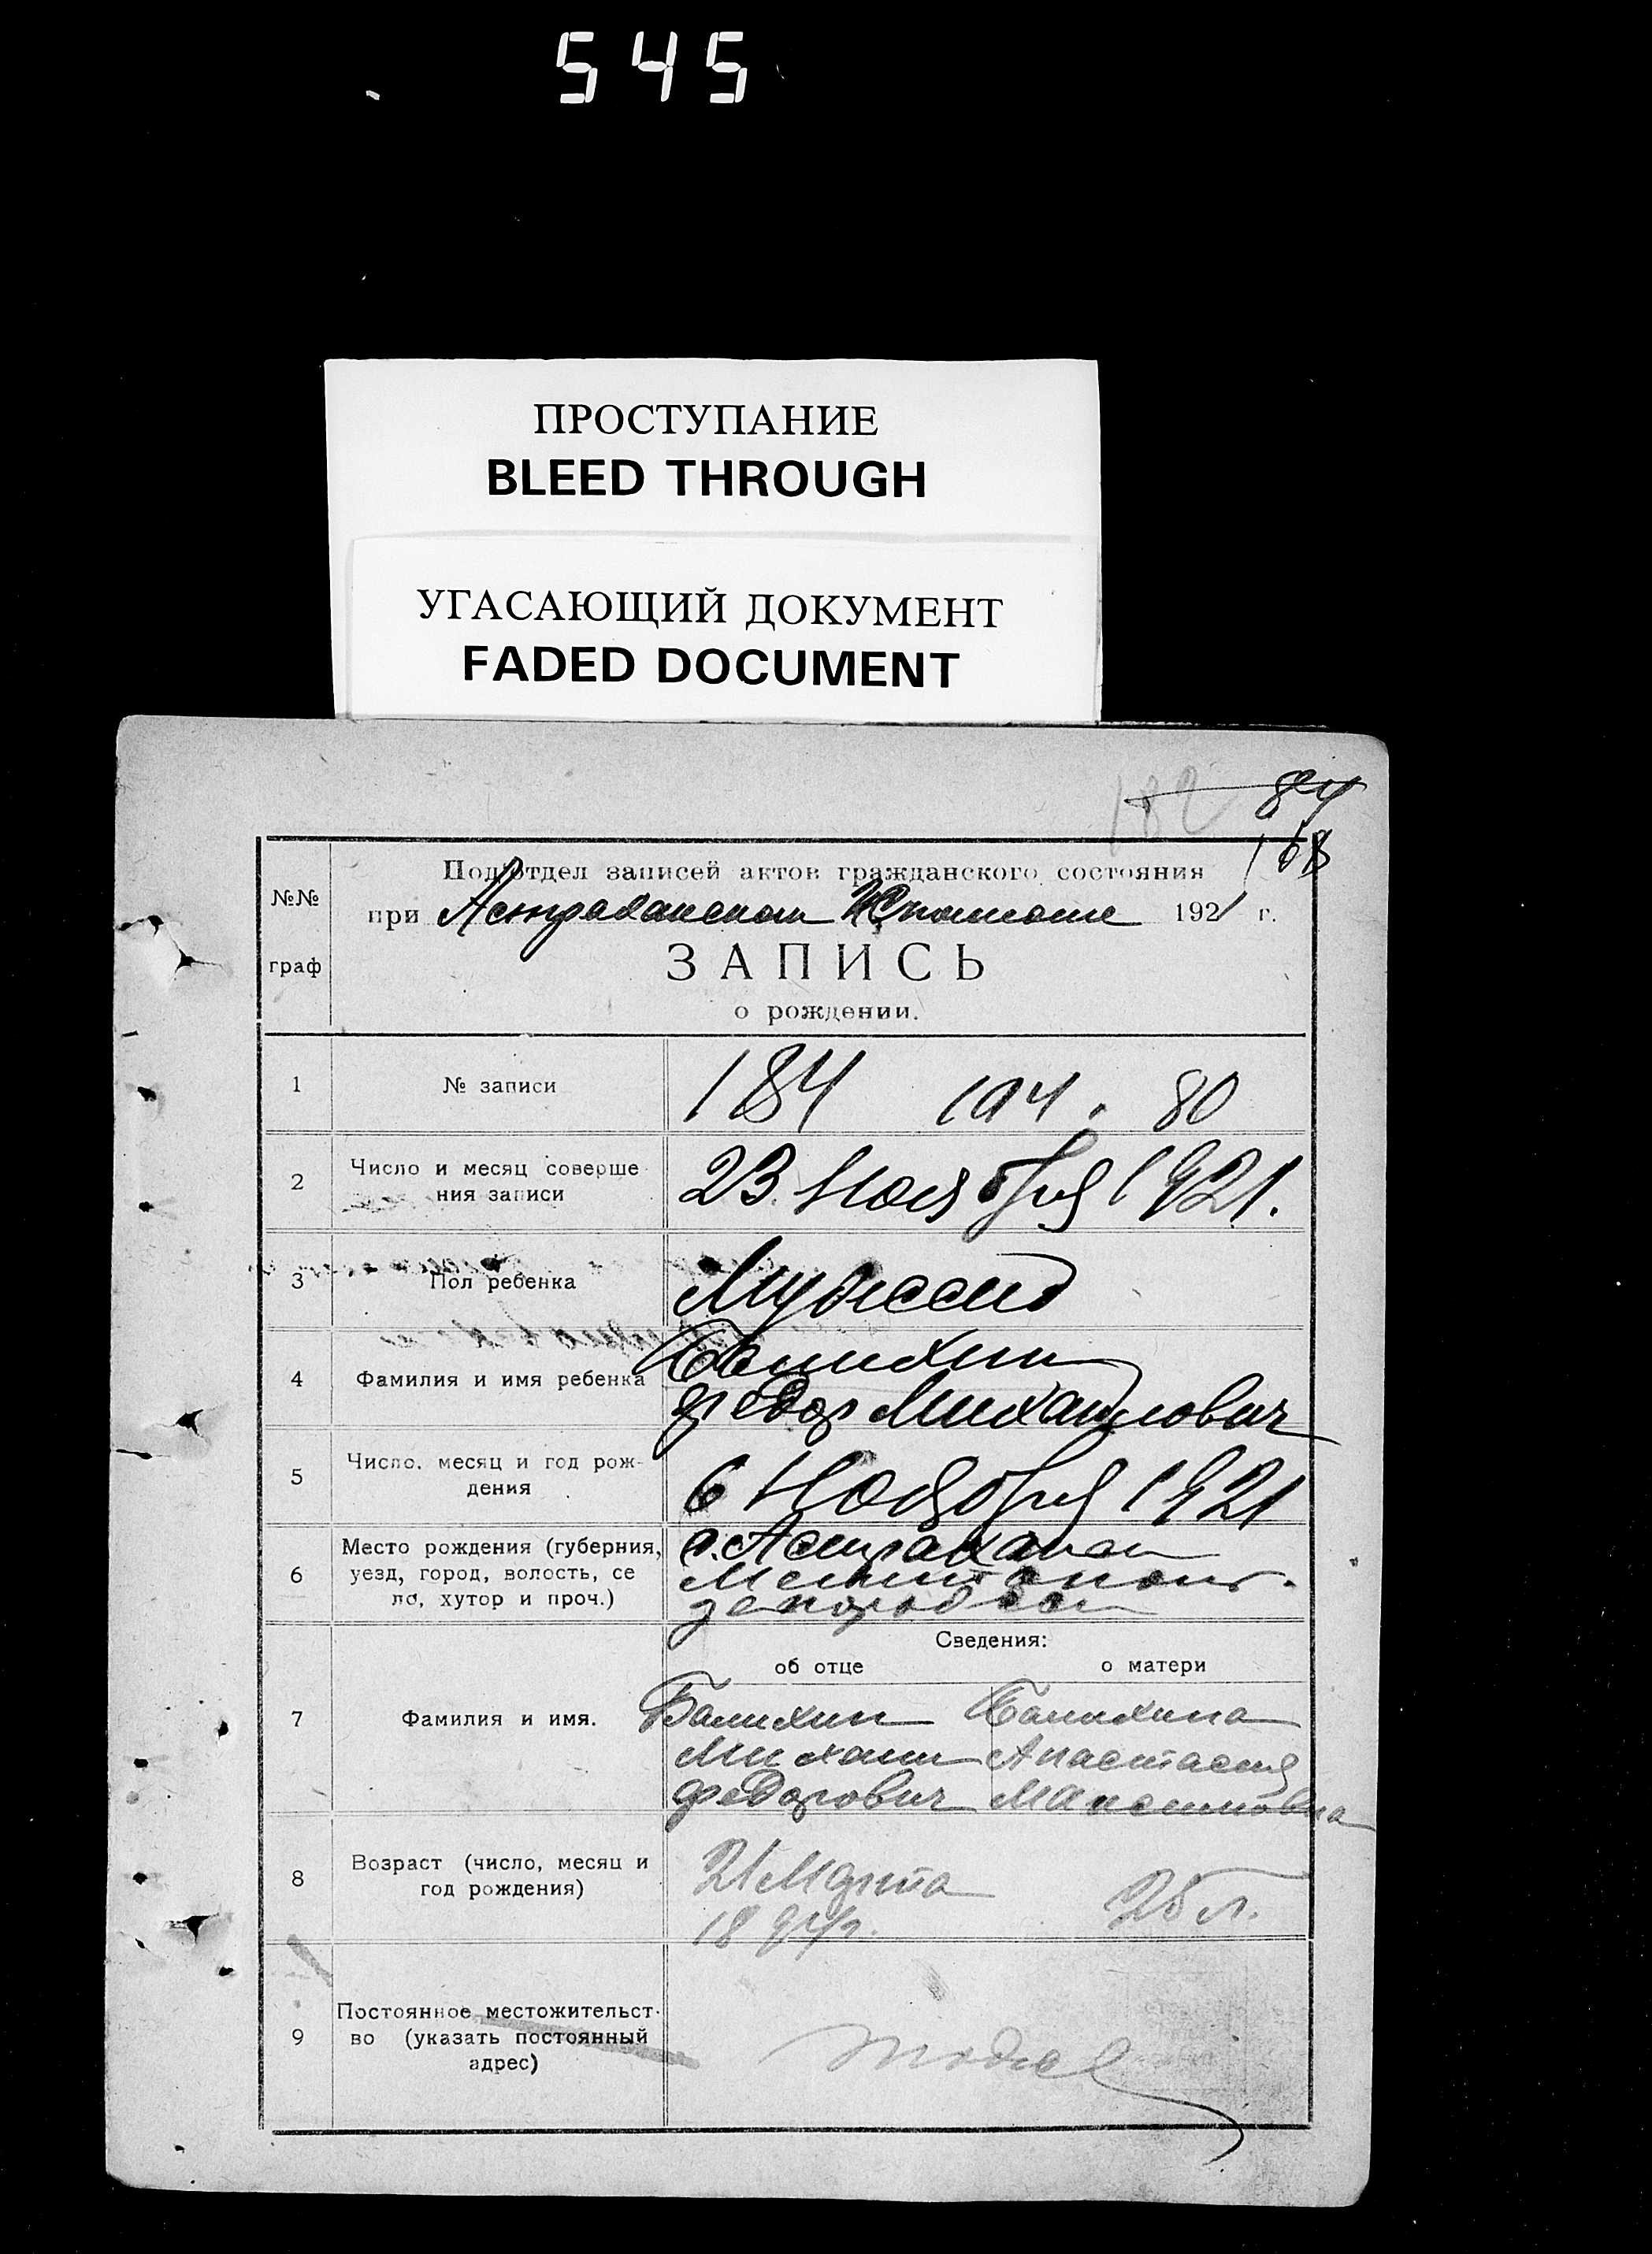 545
ПРОСТУПАНИЕ
BLEED THROUGH
УГАСАЮЩИЙ ДОКУМЕНТ
FADED DOCUMENT
182 84
168
Подотдел записей актов гражданского состояния
№№ при Астраханском 1921 г.
граф ЗАПИСЬ
о рождении.
1 № записи 184 194. 80
2 Число и месяц соверше
ния записи 23 Ноября 1921.
3 Пол ребенка
4 Фамилия и имя ребенка Балихин
Федор Михайлович
5 Число, месяц и год рож-
дения 6 Ноября 1921
6 Место рождения (губерния,
уезд, город, волость, се
ло, хутор и проч.)
с. Астраханка
Мелитопол.
Сведения:
об отце о матери
7 Фамилия и имя. Балихин Балихина
Михаил Анастасия
Федорович Максимовна
8 Возраст (число, месяц и
год рождения) 21 Марта 25 л.
1894 г.
9 Постоянное местожительст-
во (указать постоянный
адрес)